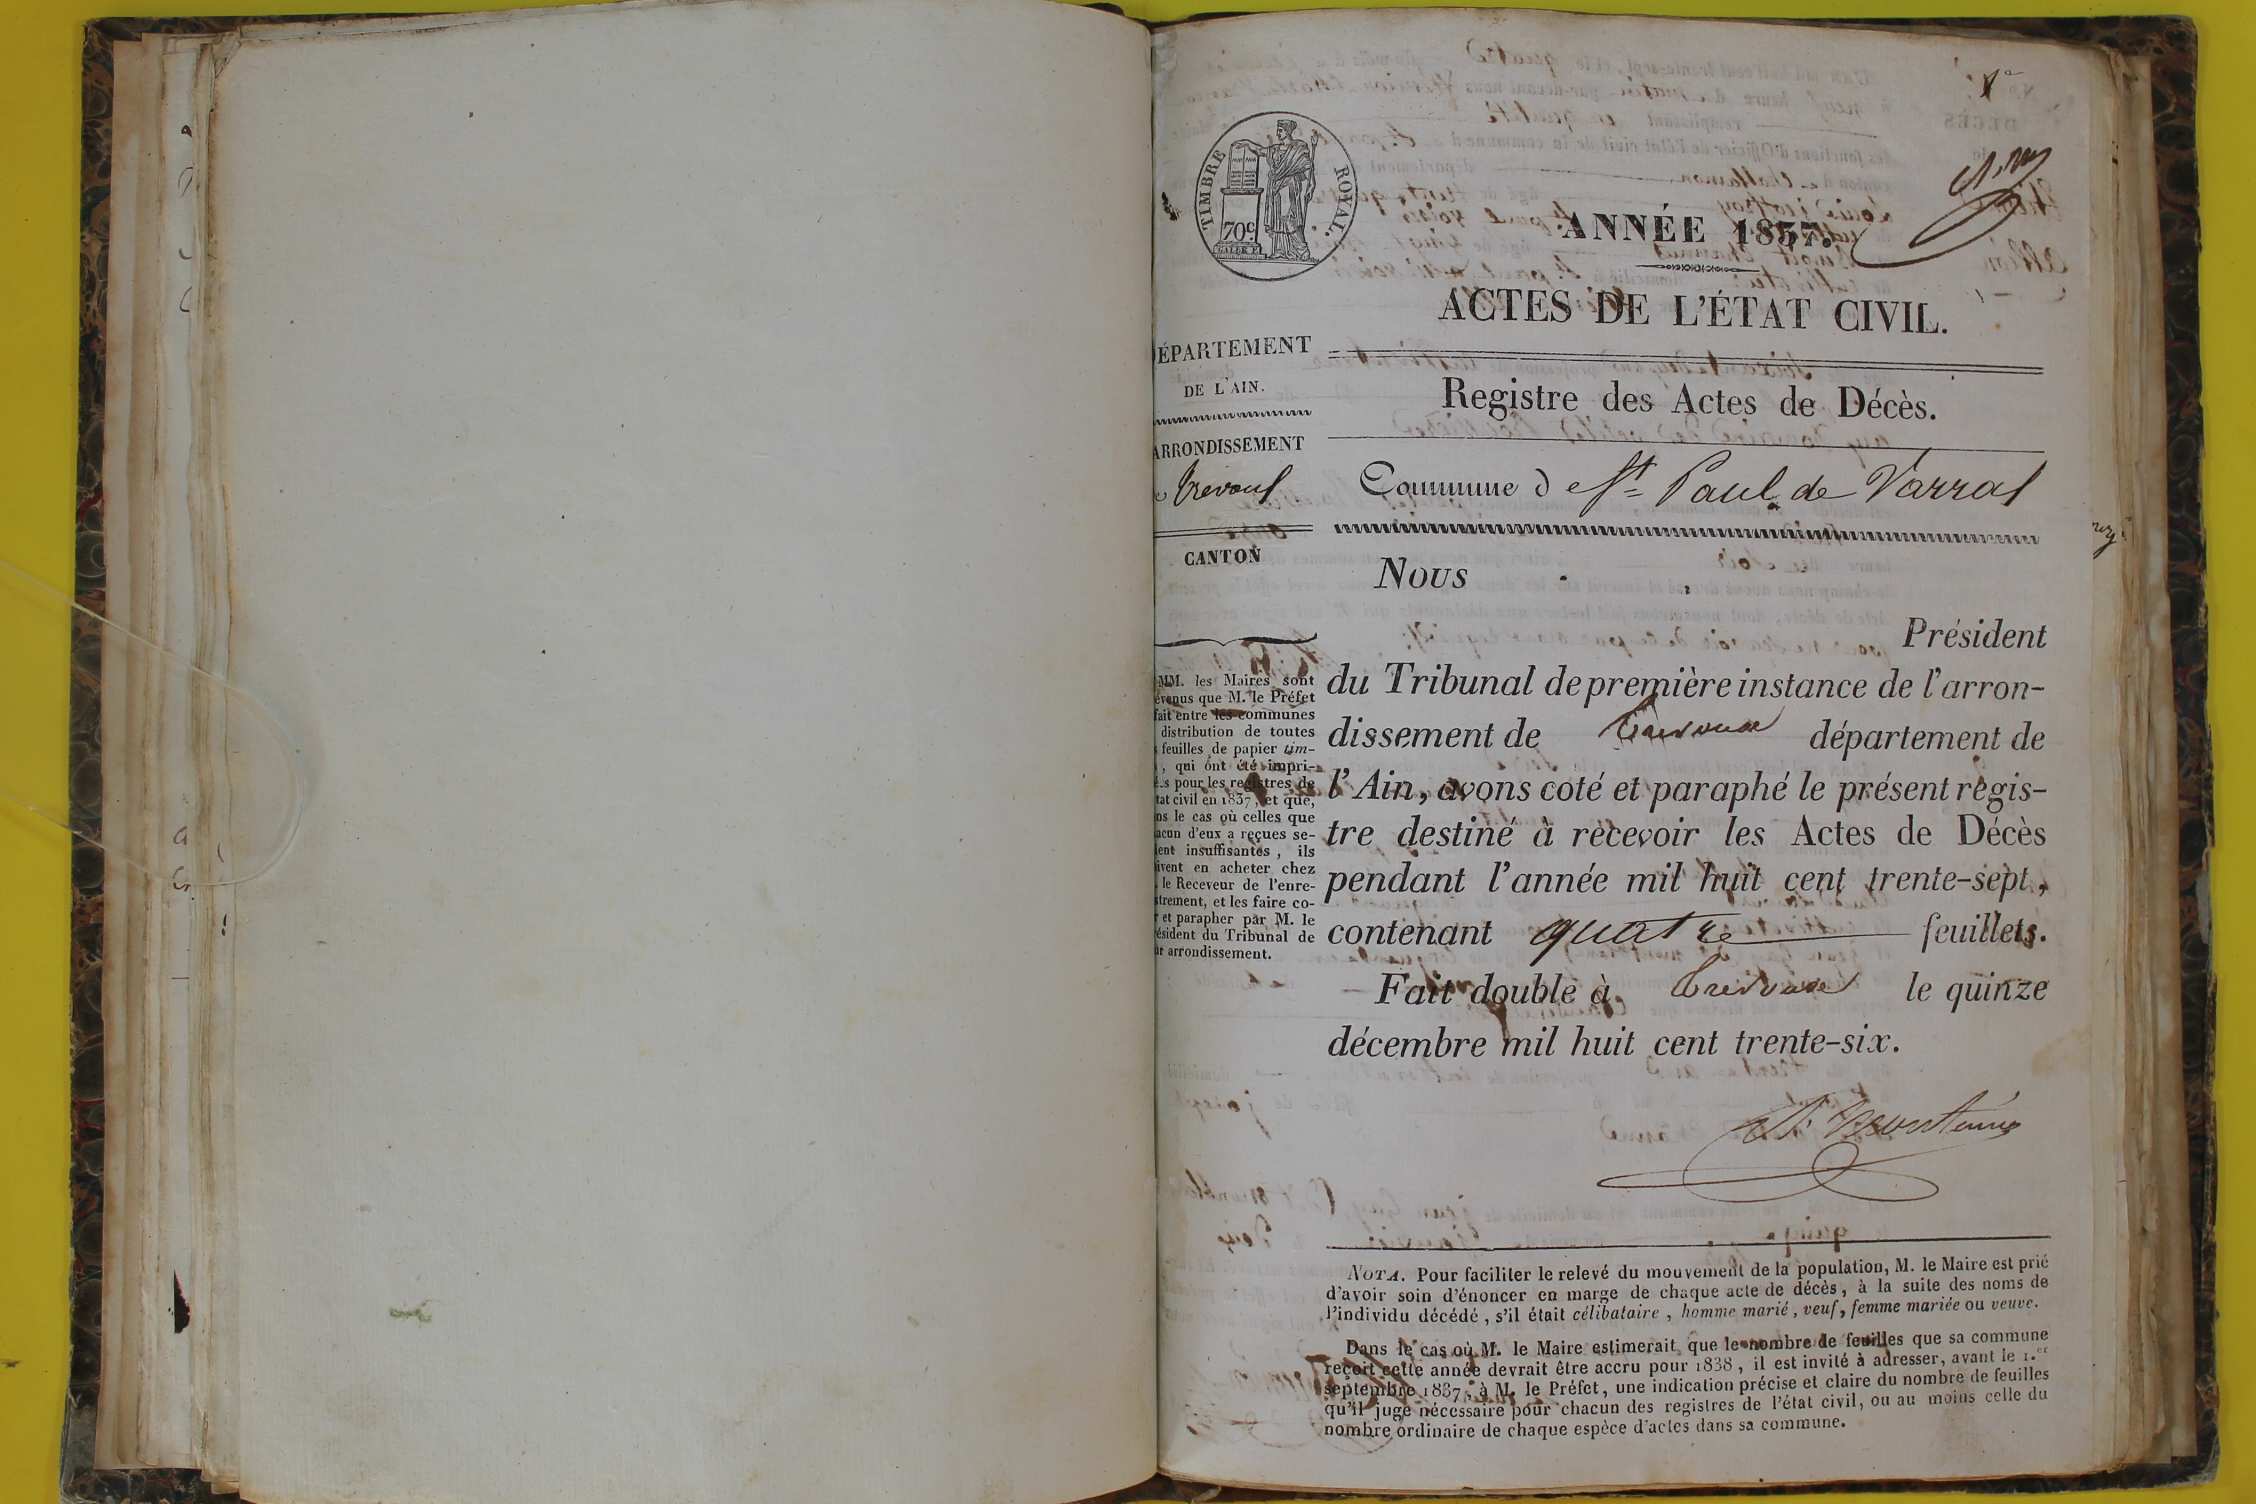 1er
TIMBRE ROYAL.
70c.
ANNÉE 1837.
ACTES DE L'ÉTAT CIVIL.
ÉPARTEMENT
DE L'AIN.
Registre des Actes de Décès.
ARRONDISSEMENT
Trevoux
Commune d St Paul de Varax
CANTON
Nous
Président
du Tribunal de première instance de l'arron-
dissement de Trevoux département de
l'Ain, avons coté et paraphé le présent régis-
tre destiné à recevoir les Actes de Décès
pendant l'année mil huit cent trente-sept,
contenant quatre feuillets.
Fait double à Trevoux le quinze
décembre mil huit cent trente-six.
MM. les Maires sont
évenus que M. le Préfet
fait entre les communes
distribution de toutes
feuilles de papier tim-
, qui ont été impri-
s pour les registres de
tat civil en 1837, et que,
ns le cas où celles que
acun d'eux a reçues se-
ient insuffisantes, ils
ivent en acheter chez
. le Receveur de l'enre-
strement, et les faire co-
r et parapher par M. le
ésident du Tribunal de
ur arrondissement.
NOTA. Pour faciliter le relevé du mouvement de la population, M. le Maire est prié
d'avoir soin d'énoncer en marge de chaque acte de décès, à la suite des noms de
l'individu décédé, s'il était célibataire, homme marié, veuf, femme mariée ou veuve.
Dans le cas où M. le Maire estimerait que le nombre de feuilles que sa commune
reçoit cette année devrait être accru pour 1838, il est invité à adresser, avant le 1.er
septembre 1837, à M. le Préfet, une indication précise et claire du nombre de feuilles
qu'il juge nécessaire pour chacun des registres de l'état civil, ou au moins celle du
nombre ordinaire de chaque espèce d'actes dans sa commune.